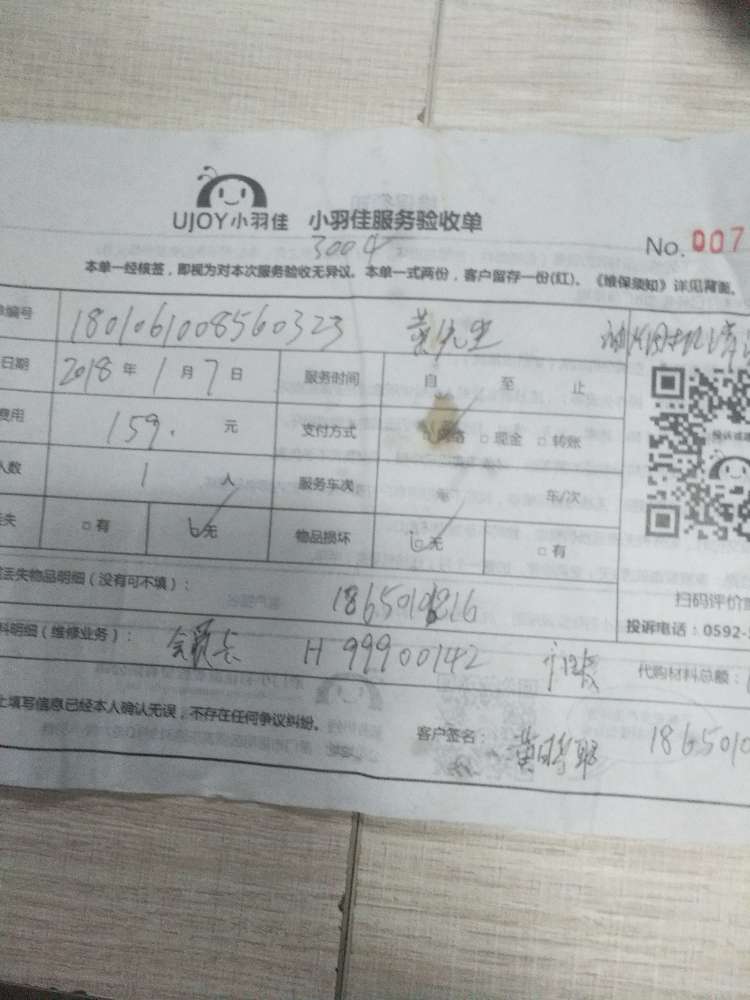 UJOY小羽佳 小羽佳服务验收单
3004
No. 007
本单一经核签，即视为对本次服务验收无异议。本单一式两份，客户留存一份(红)。《维保须知》详见背面。
编号 1801061008560323 黄先生
日期 2018 年 1 月 7 日 服务时间 自 至 止
费用 159. 元 支付方式 网络 □ 现金 □ 转账
人数 1 人 服务车次 车/次
失 □ 有 □ 无 物品损坏 □ 无 □ 有
丢失物品明细（没有可不填）： 1865019816
扫码评价
投诉电话：0592-
料明细（维修业务）： 会员卡 H 99900142 代购材料总额：
上填写信息已经本人确认无误，不存在任何争议纠纷。 客户签名： 186501